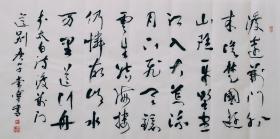 渡遠荆门外
来從楚國遊
山随平野尽
江入大荒流
月下飞天镜
雲生结海楼
仍憐故鄉水
万里送行舟
李太白诗渡荆门
送别庚子書